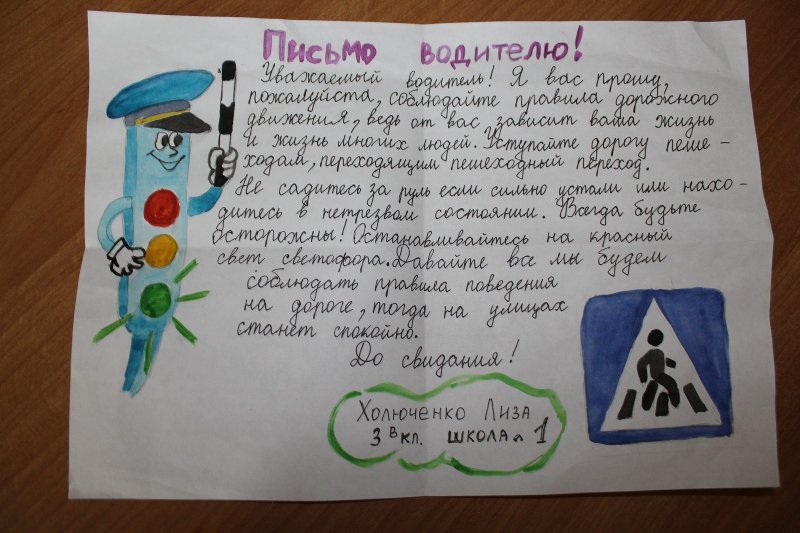 Письмо водителю!
Уважаемый водитель! Я вас прошу,
пожалуйста, соблюдайте правила дорожного
движения, ведь от вас зависит ваша жизнь
и жизнь многих людей. Уступайте дорогу пеше-
ходам, переходящим пешеходный переход.
Не садитесь за руль если сильно устали или нахо-
дитесь в нетрезвом состоянии. Всегда будьте
осторожны! Останавливайтесь на красный
свет светофора. Давайте все мы будем
соблюдать правила поведения
на дороге, тогда на улицах
станет спокойно.
До свидания!
Холюченко Лиза
3 в кл. школа №1